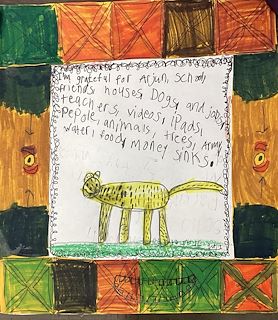 I'm grateful for Arjun, School,
friends houses, Dogs, and jobs,
teachers, videos, iPads,
people, animals, trees, Army,
water, food, money sinks.